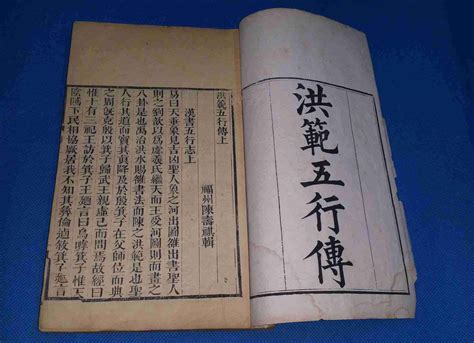 洪範五行傳
洪範五行傳上
福州陳壽祺輯
漢書五行志上
易曰天垂象見吉凶聖人象之河出圖雒出書聖人
則之劉歆以爲虙羲氏繼天而王受河圖則而畫之
八卦是也禹治洪水賜雒書法而陳之洪範是也聖
人行其道而寶其真降及於殷箕子在父師位而典
之周既克殷以箕子歸武王親虛己而問焉故經曰
惟十有三祀王訪於箕子王廼言曰烏嘑箕子惟天
陰隲下民相協厥居我不知其彝倫逌敘箕子廼言